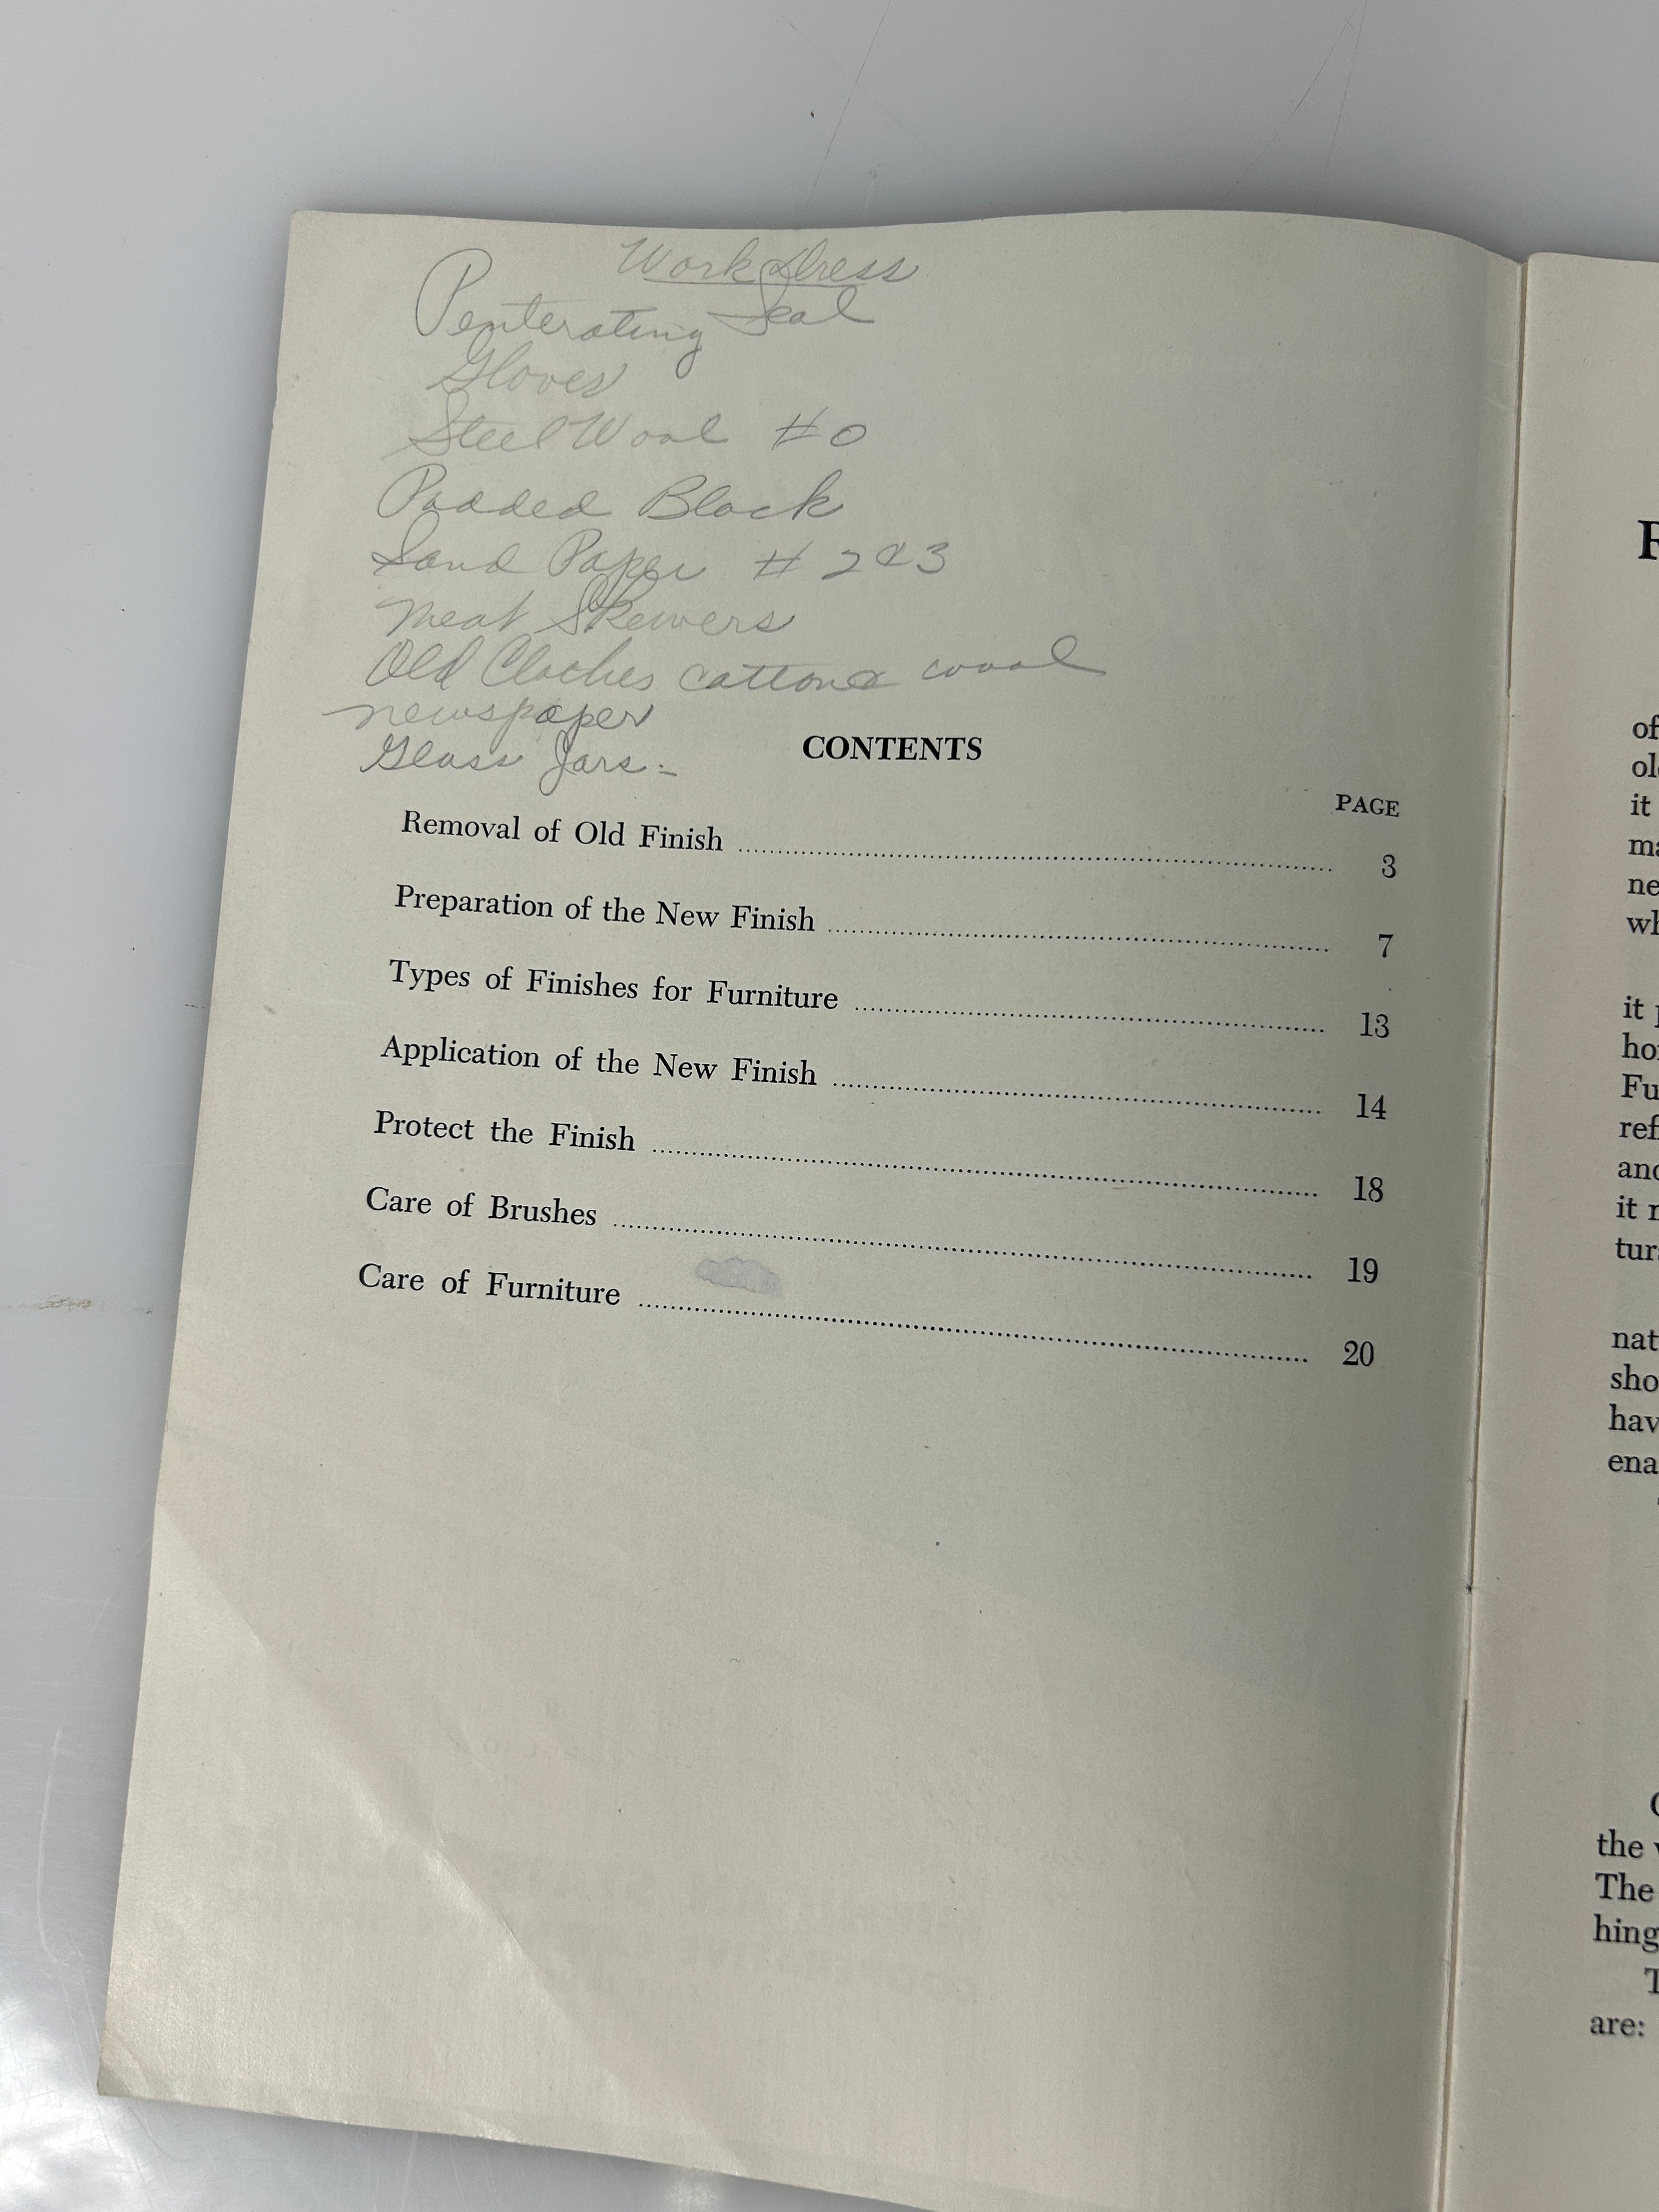 Work Dress
Penterating Seal
Gloves
Steel Wool #0
Padded Block
Sand Paper # 2 & 3
Meat Skewers
Old Cloches cotton & wool
newspaper
Glass Jars -
CONTENTS
PAGE
Removal of Old Finish 3
Preparation of the New Finish 7
Types of Finishes for Furniture 13
Application of the New Finish 14
Protect the Finish 18
Care of Brushes 19
Care of Furniture 20
R
of
it
it
ref
it
nat
sho
hav
ena
the
The
hing
T
are: